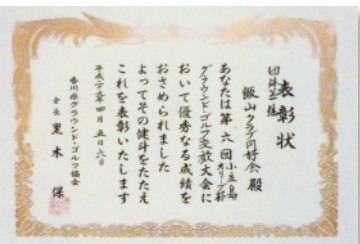 表彰状
団体
飯山クラブ同好会 殿
あなたは第六回小豆島オリーブ杯
グラウンド・ゴルフ交歓大会に
おいて優秀なる成績を
おさめられました
よってその健斗をたたえ
これを表彰いたします
平成二六年四月五日六日
香川県グラウンド・ゴルフ協会
会長 黒木 保